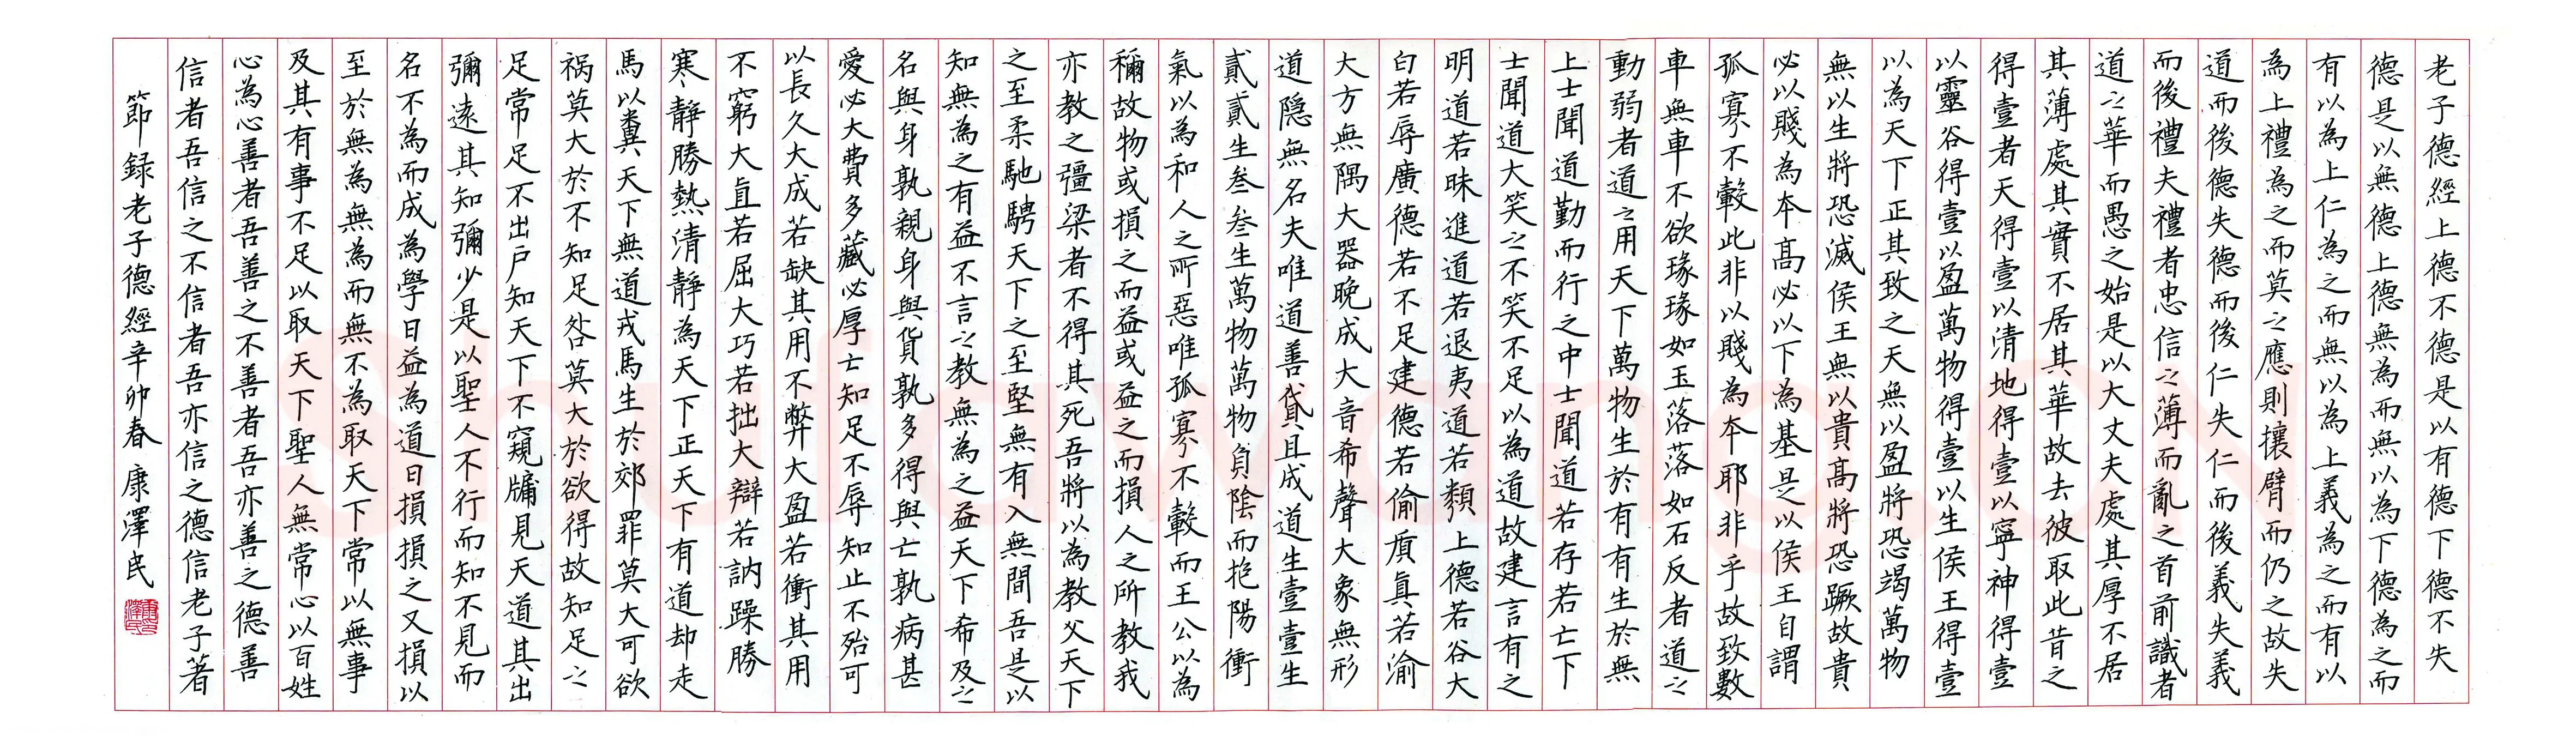 老子德經上德不德是以有德下德不失
德是以無德上德無為而無以為下德為之而
有以為上仁為之而無以為上義為之而有以
為上禮為之而莫之應則攘臂而仍之故失
道而後德失德而後仁失仁而後義失義
而後禮夫禮者忠信之薄而亂之首前識者
道之華而愚之始是以大丈夫處其厚不居
其薄處其實不居其華故去彼取此昔之
得壹者天得壹以清地得壹以寧神得壹
以靈谷得壹以盈萬物得壹以生侯王得壹
以為天下正其致之天無以盈將恐竭萬物
無以生將恐滅侯王無以貴高將恐蹶故貴
必以賤為本高必以下為基是以侯王自謂
孤寡不轂此非以賤為本耶非乎故致數
車無車不欲琭琭如玉落落如石反者道之
動弱者道之用天下萬物生於有有生於無
上士聞道勤而行之中士聞道若存若亡下
士聞道大笑之不笑不足以為道故建言有之
明道若昧進道若退夷道若纇上德若谷大
白若辱廣德若不足建德若偷質真若渝
大方無隅大器晚成大音希聲大象無形
道隱無名夫唯道善貸且成道生壹壹生
貳貳生叁叁生萬物萬物負陰而抱陽衝
氣以為和人之所惡唯孤寡不轂而王公以為
稱故物或損之而益或益之而損人之所教我
亦教之彊梁者不得其死吾將以為教父天下
之至柔馳騁天下之至堅無有入無間吾是以
知無為之有益不言之教無為之益天下希及之
名與身孰親身與貨孰多得與亡孰病甚
愛必大費多藏必厚亡知足不辱知止不殆可
以長久大成若缺其用不弊大盈若衝其用
不窮大直若屈大巧若拙大辯若訥躁勝
寒靜勝熱清靜為天下正天下有道却走
馬以糞天下無道戎馬生於郊罪莫大可欲
祸莫大於不知足咎莫大於欲得故知足之
足常足不出户知天下不窺牖見天道其出
彌遠其知彌少是以聖人不行而知不見而
名不為而成為學日益為道日損損之又損以
至於無為無為而無不為取天下常以無事
及其有事不足以取天下聖人無常心以百姓
心為心善者吾善之不善者吾亦善之德善
信者吾信之不信者吾亦信之德信老子著
節録老子德經辛卯春康澤民
康澤民印
Shufawang.CN